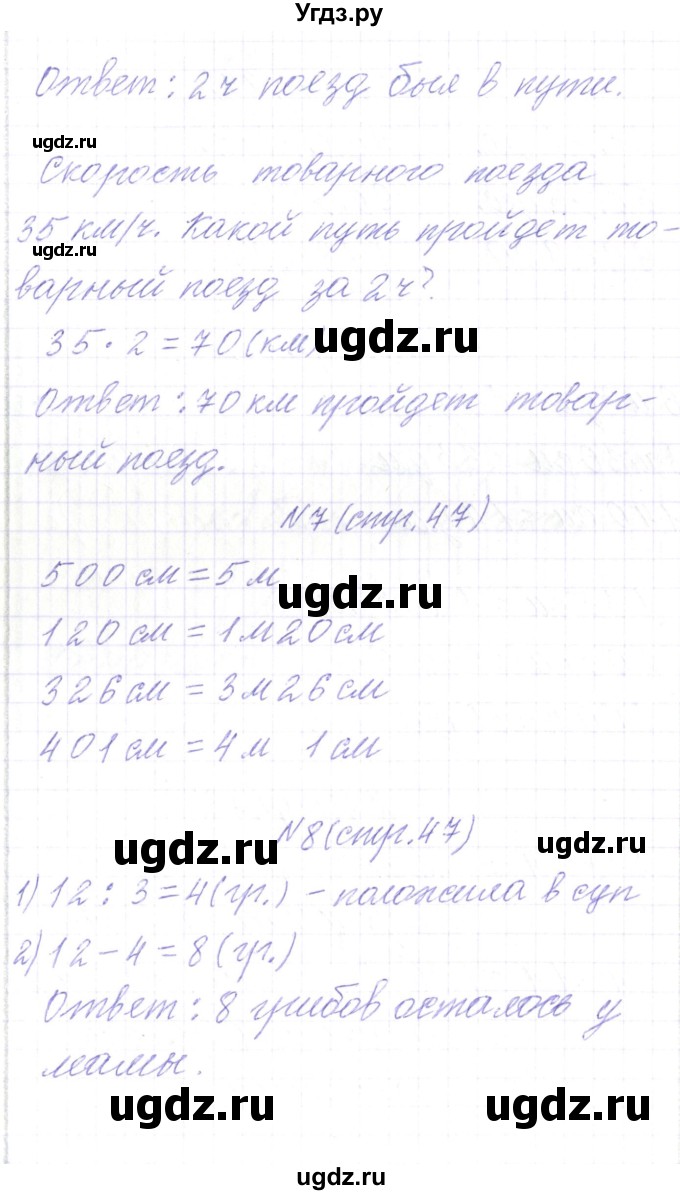 Угдз.ру
Ответ: 2ч поезд был в пути.
ugdz.ru
Скорость товарного поезда
35 км/ч. Какой путь пройдет то-
ugdz.ru
варный поезд за 2ч?
35 · 2 = 70 (км)
ugdz.ru
Ответ: 70 км пройдет товар-
ный поезд.
N7 (стр. 47)
500 см = 5 м
ugdz.ru
120 см = 1м 20 см
326 см = 3м 26 см
401 см = 4 м 1 см
N8 (стр. 47)
ugdz.ru
ugdz.ru
1) 12 : 3 = 4 (гр.) - положила в суп
2) 12 - 4 = 8 (гр.)
Ответ: 8 грибов осталось у
мамы.
ugdz.ru
ugdz.ru
ugdz.ru